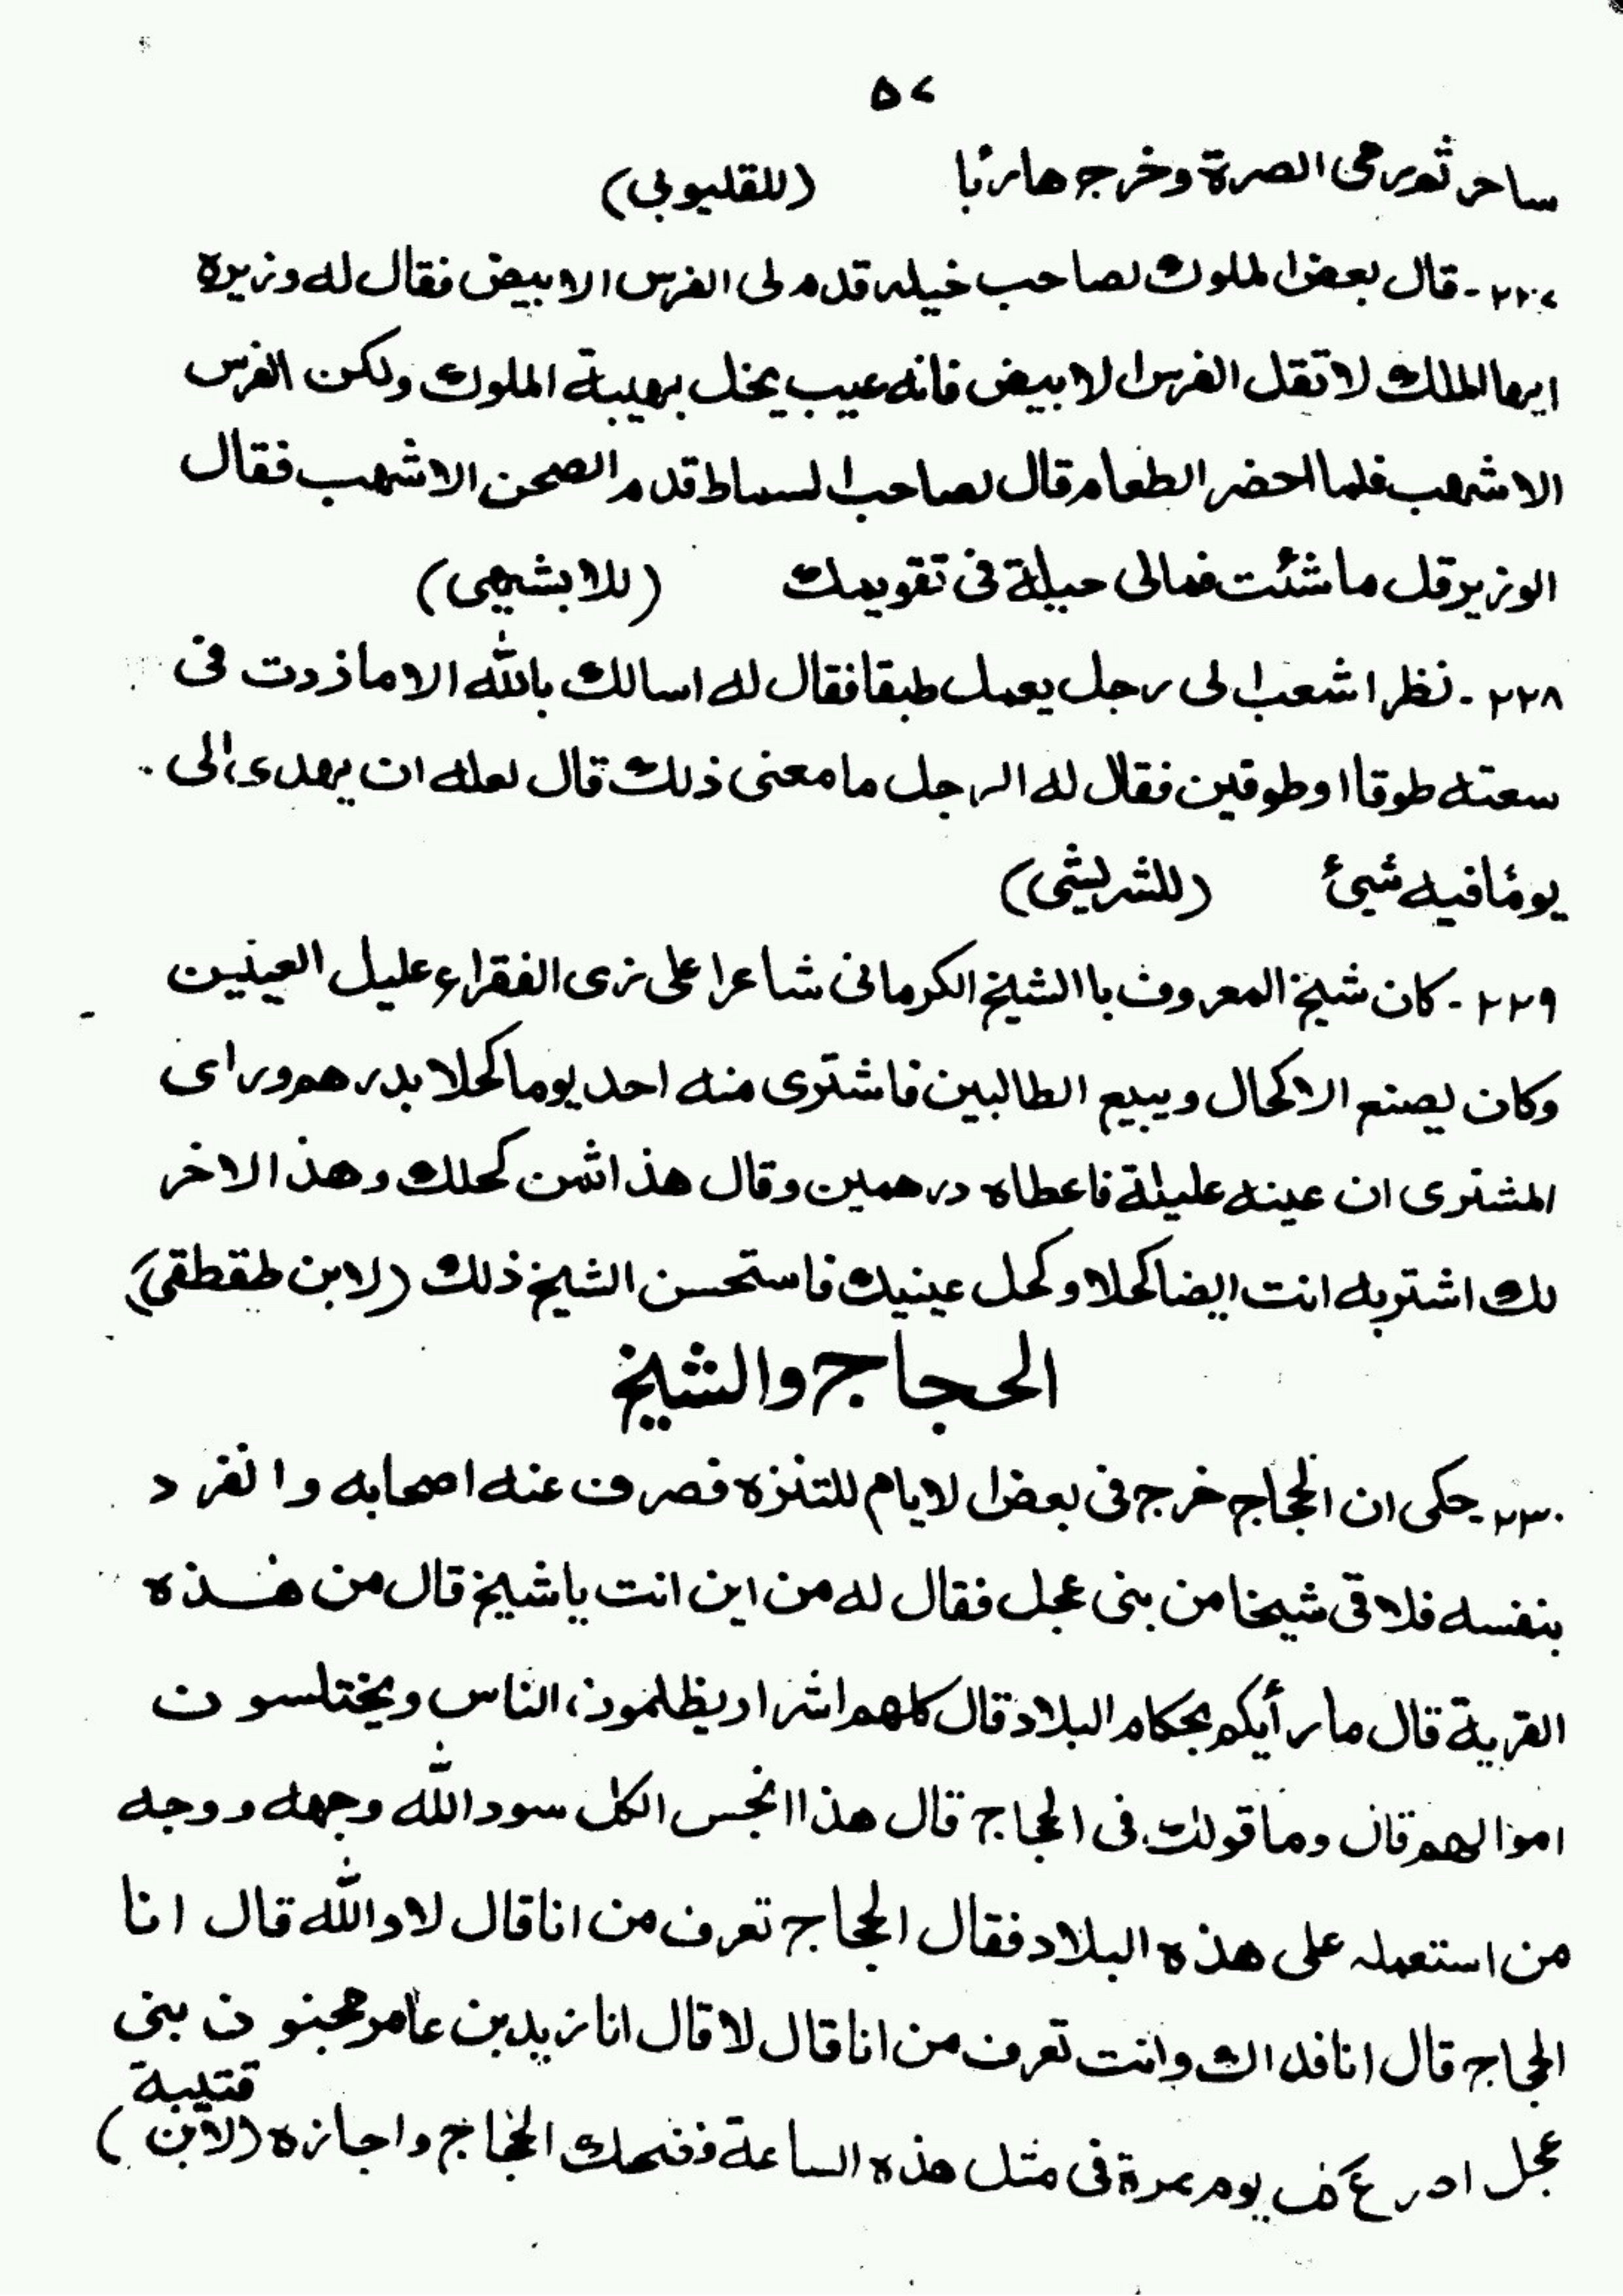 ٥٧
ساحر ثم رمى الصرة وخرج هاربًا (للقليوبي)
٢٢٧- قال بعض الملوك لصاحب خيله قدم لى الفرس الابيض فقال له وزيره
ايها الملك لا تقل الفرس الابيض فانه عيب يخل بهيبة الملوك ولكن الفرس
الاشهب فلما احضر الطعام قال لصاحب السماط قدم الصحن الاشهب فقال
الوزير قل ما شئت فمالى حيلة فى تقويمك (للابشيهى)
٢٢٨- نظر اشعب الى رجل يعمل طبقا فقال له اسالك بالله الا ما زدت فى
سعته طوقا او طوقين فقال له الرجل ما معنى ذلك قال لعله ان يهدى الى
يومًا فيه شيئ (للشريشى)
٢٢٩- كان شيخ المعروف با الشيخ الكرمانى شاعرا على زى الفقراء عليل العينين
وكان يصنع الاكحال ويبيع الطالبين فاشترى منه احد يوما كحلا بدرهم وراى
المشترى ان عينه عليلة فاعطاه درهمين وقال هذا ثمن كحلك وهذ الاخر
لك اشتر به انت ايضا كحلا وكحل عينيك فاستحسن الشيخ ذلك (لابن طقطقى)
الحجاج والشيخ
٢٣٠- حكى ان الحجاج خرج فى بعض الايام للتنزه فصرف عنه اصحابه وانفرد
بنفسه فلاقى شيخا من بنى عجل فقال له من اين انت يا شيخ قال من هذه
القرية قال ما رأيكم بحكام البلاد قال كلهم اشرار يظلمون الناس ويختلسون
اموالهم قال وما قولك فى الحجاج قال هذا انجس الكل سود الله وجهه ووجه
من استعمله على هذه البلاد فقال الحجاج تعرف من انا قال لا والله قال انا
الحجاج قال انا فداك وانت تعرف من انا قال لا قال انا زيد بن عامر مجنون بنى
عجل ادرع كف يوم مرة فى مثل هذه الساعة فضحك الحجاج واجازه (لابن قتيبة)